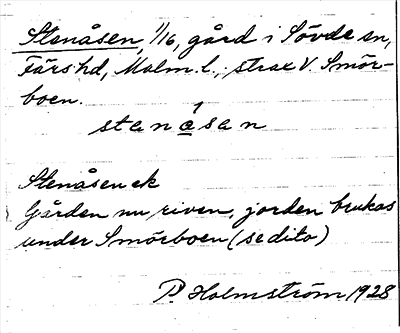 Stenåsen, 1/16, gård i Sövde sn,
Färs hd, Malm. l., strax V. Smör-
boen.
stenåsan
Stenåsen ek
Gården nu riven, jorden brukas
under Smörboen (se dito)
P. Holmström 1928